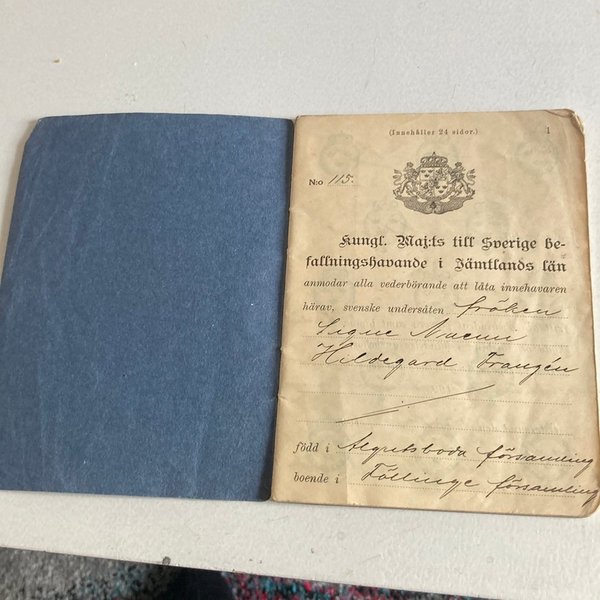 (Innehåller 24 sidor.) 1
N:o 115.
Kungl. Maj:ts till Sverige be-
fallningshavande i Jämtlands län
anmodar alla vederbörande att låta innehavaren
härav, svenske undersåten fröken
Signe Naemi
Hildegard Frangén
född i Algutsboda församling
boende i Föllinge församling